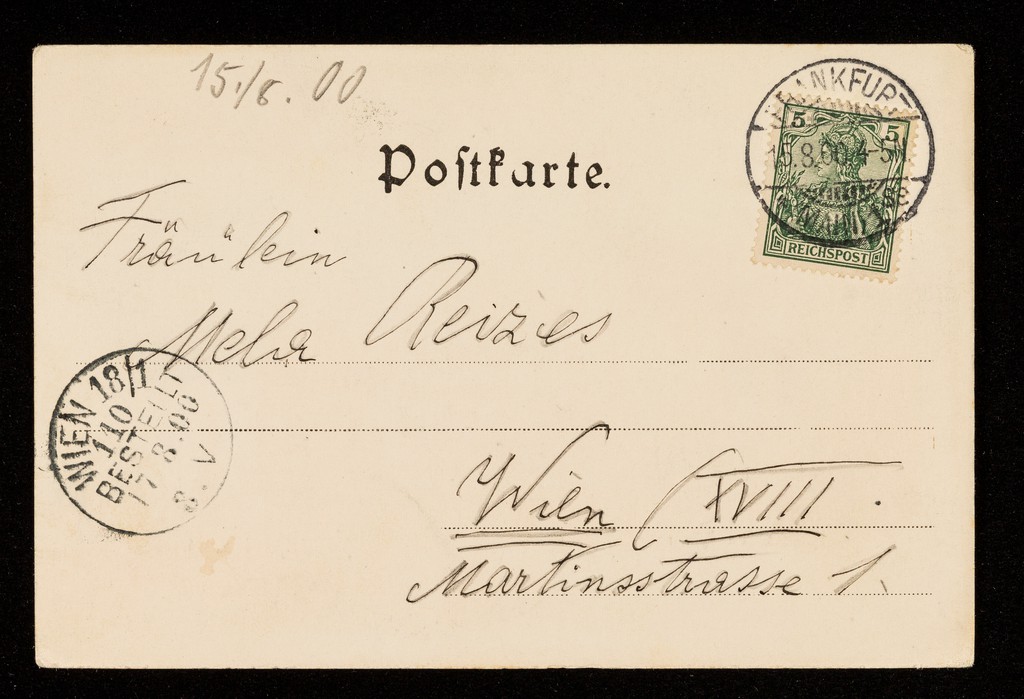 15./8. 00
FRANKFURT
5 5
15.8.00. 4-5
(MAIN) 1
REICHSPOST
Postkarte.
Fräulein
Mela Reizes
WIEN 18/1
110
BESTELLT
17 8.00
8. V
Wien (XVIII.
Martinsstrasse 1.